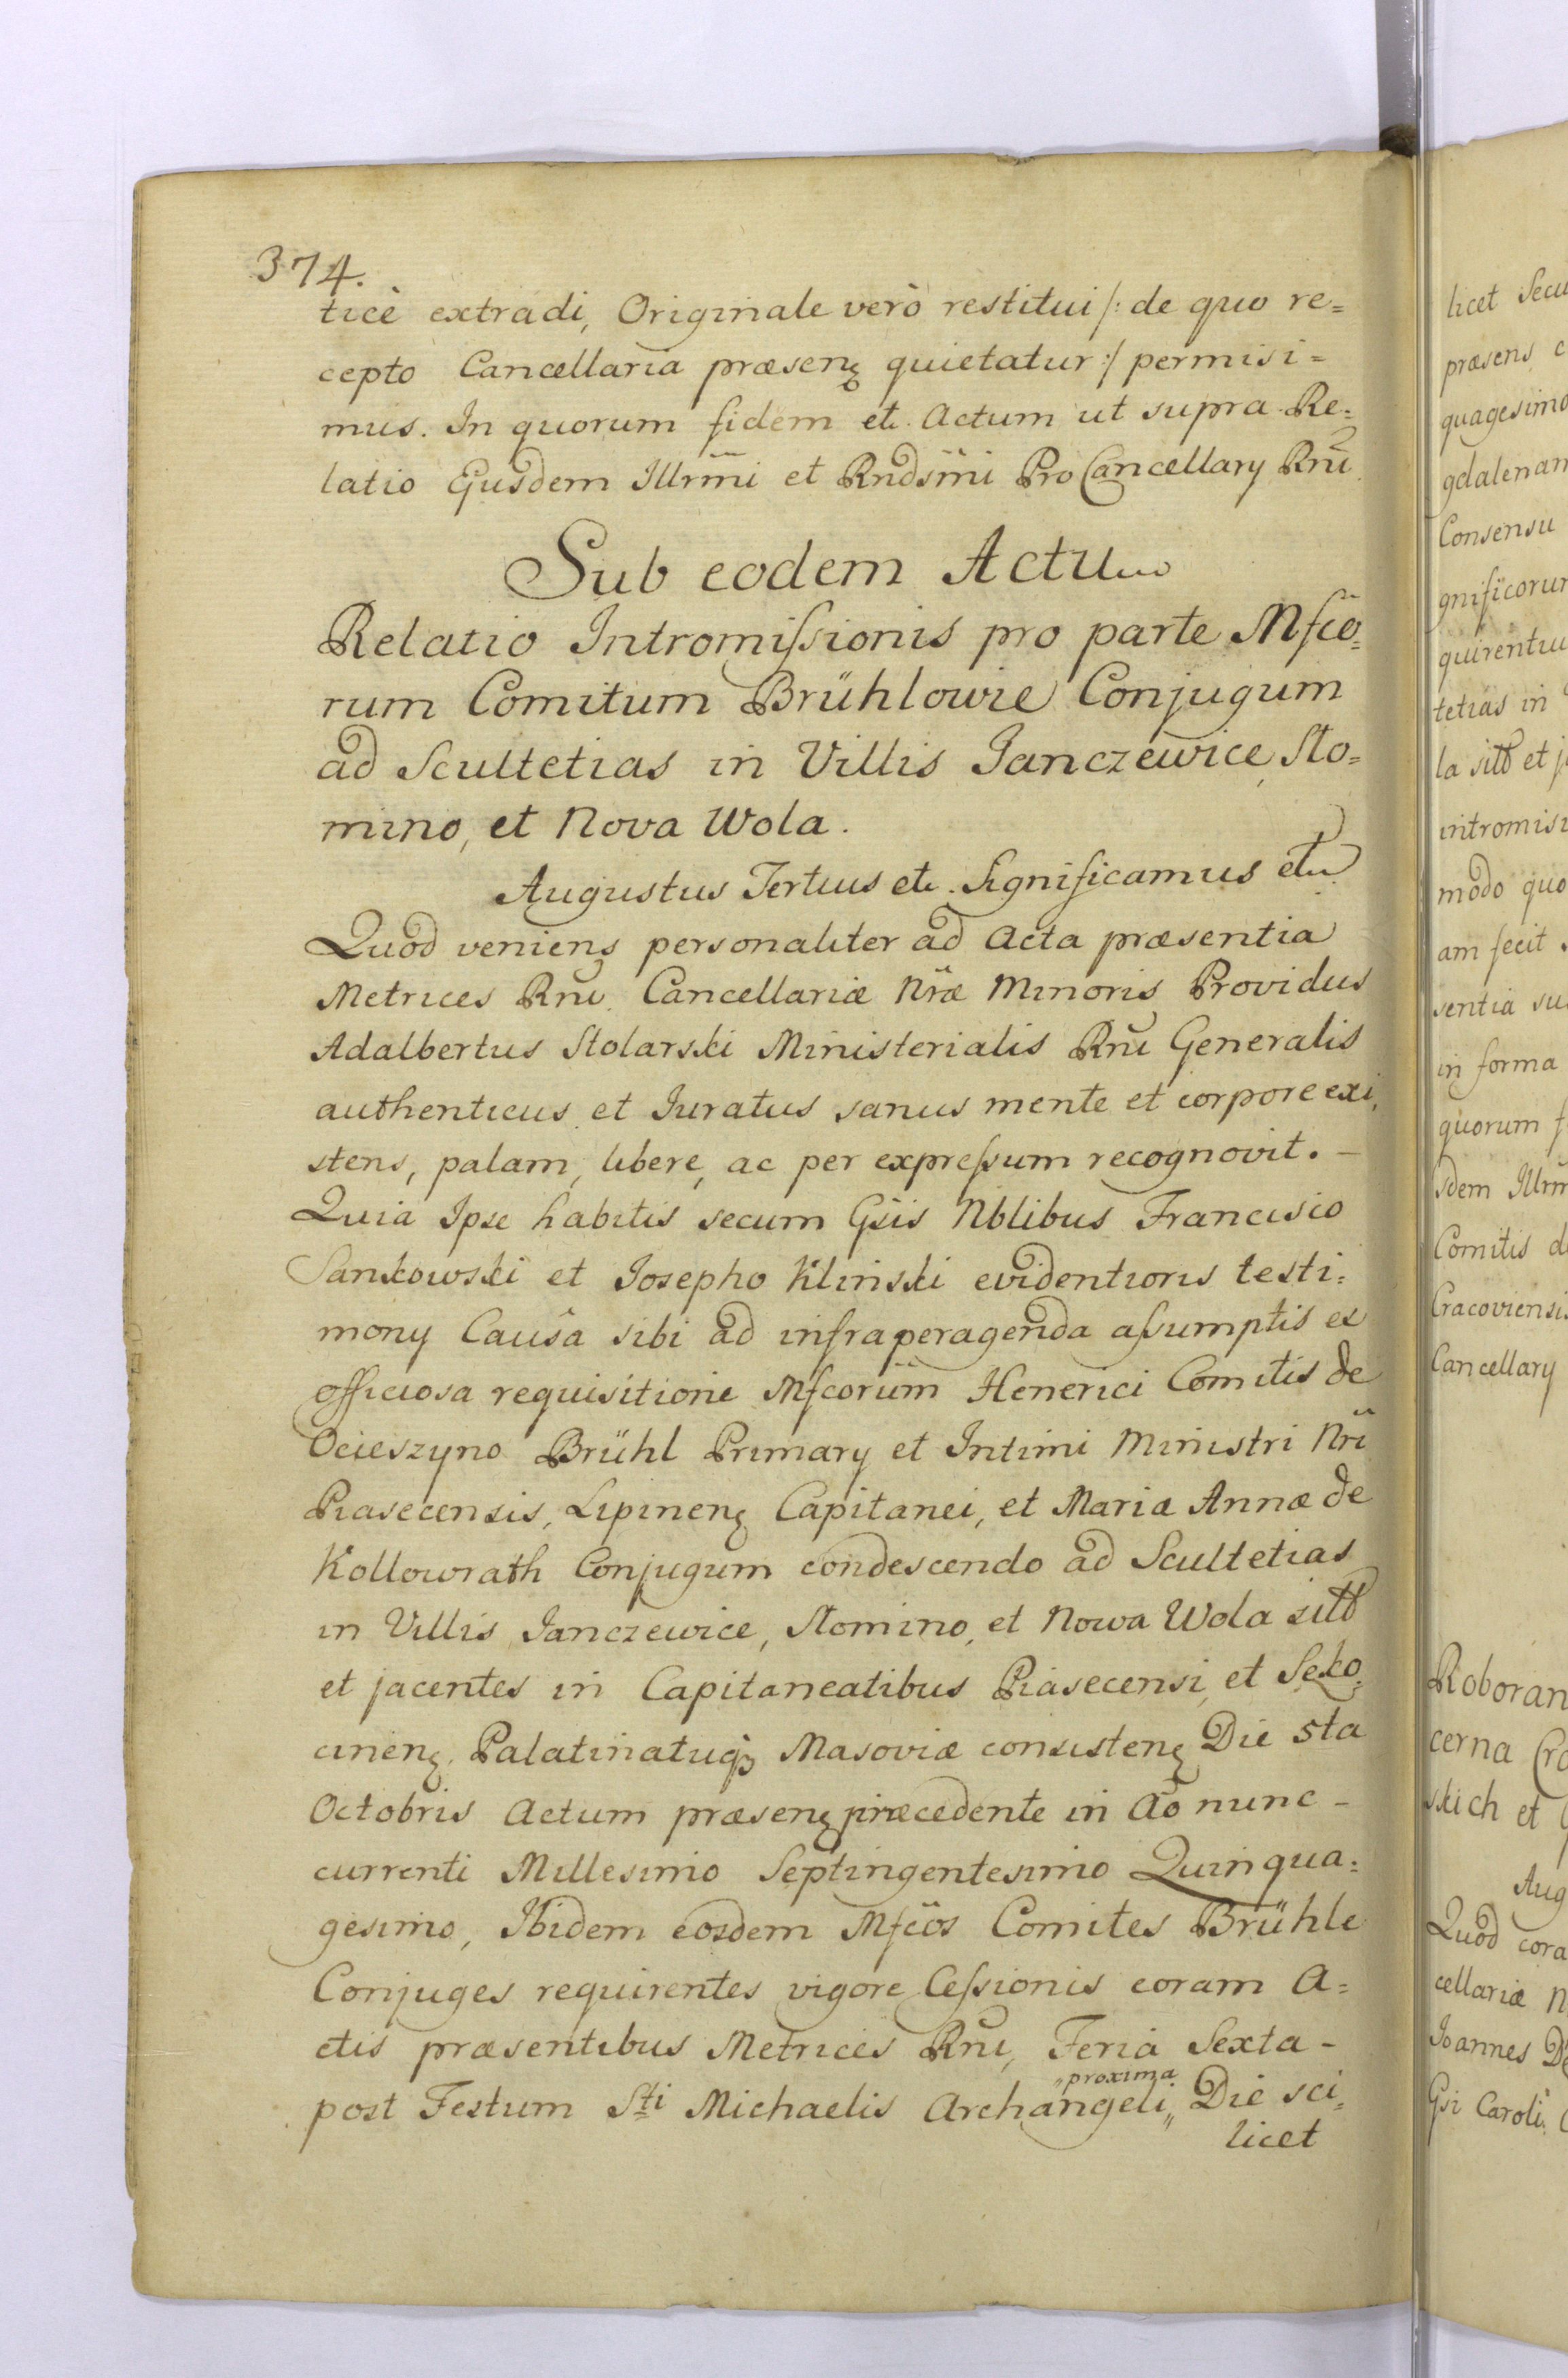 374.
ticè extradi, Originale verò restitui /: de quo re=
cepto Cancellaria præsenꝫ quietatur :/ permisi=
mus. In quorum fidem etc. Actum ut supra. Re=
latio Ejusdem Illrm̃i et Rndsm̃i ProCancellarÿ Rñi
Sub eodem Actu
Relatio Intromiſsionis pro parte Mfco=
rum Comitum Brühlowie Conjugum
ad Scultetias in Villis Janczewice, Sło=
mino, et Nova Wola.
Augustus Tertius etc. Significamus etc
Quod veniens personaliter ad Acta præsentia
Metrices Rñi Cancellariæ Nr̃æ Minoris Providus
Adalbertus Stolarski Ministerialis Rñi Generalis
authenticus et Juratus sanus mente et corpore exi=
stens, palam, libere, ac per expreſsum recognovit. –
Quia Ipse habitis secum Gsis Nblibus Francisco
Sankowski et Josepho Kliński evidentioris testi=
monÿ Causâ sibi ad infraperagenda aſsumptis ex
officiosa requisitione Mfcorum̃ Henerici Comitis de
Ocieszyno Brühl PrimarÿÂ et Intimi Ministri Nr̃i
Piasecensis, Lipinenꝫ Capitanei, et Mariæ Annæ de
Kollowrath Conjugum condescendo ad Scultetias
in Villis Janczewice, Słomino, et Nowa Wola sitt
et jacentes in Capitaneatibus Piasecensi, et Seko=
cinenꝫ Palatinatuqꝫ Masoviæ consistenꝫ Die 5ta
Octobris Actum præsenꝫ præcedente in Aõ nunc –
currenti Millesimo Septingentesimo Quinqua=
gesimo, Ibidem eosdem Mfcos Comites Brühle
Conjuges requirentes vigore Ceſsionis coram A=
ctis præsentibus Metrices Rñi, Feria Sexta –
post Festum Sti Michaelis Archangeli „proxima„ Die sci=
licet
licet Secu
præsens c
quagesimo
gdalenam
Consensu
gnificorum
quirentiu
tetias in
la sitt et j
intromisi
modo quo
am fecit
sentia su
in forma
quorum f
sdem Illrm
Comitis d
Cracoviensi
Cancellarÿ
Roboran
cerna Cra
skich et
Aug
Quod cora
cellariæ N
Joannes D
Gsi Caroli